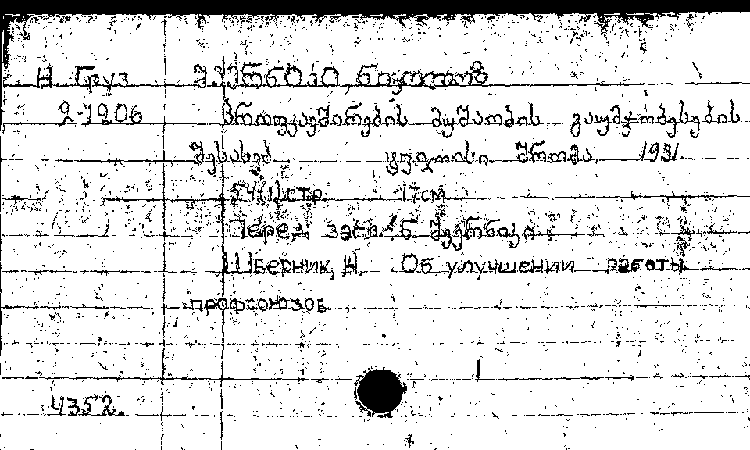 Н Груз
2-1206
პროფკავშირების მუშაობის გაუმჯობესების
შესახებ ტფილისი შრომა 1931
54(1)стр. 17см
Перед загл.: ნ. შვერნიკი
Шверник, Н. Об улучшении работы
профсоюзов
4352.